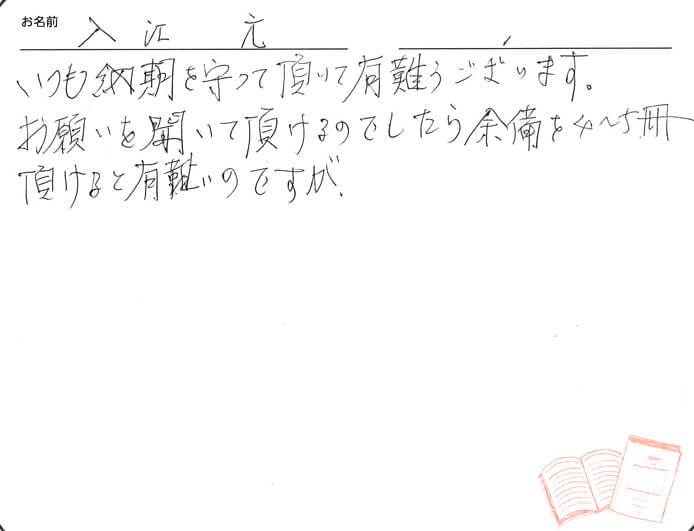 お名前 入江 元
いつも納期を守って頂いて有難うございます。
お願いを聞いて頂けるのでしたら余備を4〜5冊
頂けると有難いのですが、